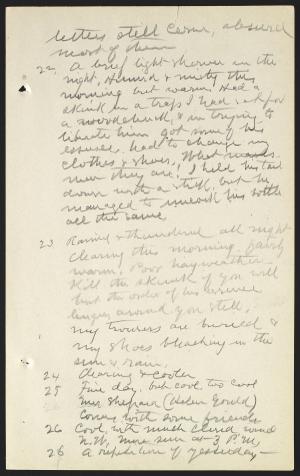 letters still come, absurd
most of them
22. A brief light shower in the
night. Humid & misty this
morning but warm. Had a
skunk in a trap I had set for
a woodchuck, & in trying to
liberate him got some of his
essence. had to change my
clothes & shoes. What
now they are. I held his tail
down with a stick, but he
managed to uncork his bottle
all the same.
23 Rained & thundered all night
clearing this morning. fairly
warm. Poor hay weather.
Kill the skunk if you will
but the odor of his
lingers around you still.
my trousers are buried &
my shoes bleaching in the
sun & rain.
24 Clearing & cooler
25 Fine day. but cool, too cool
Mrs Shepard (Helen Gould)
Comes with some friends
26 Cool, with much cloud wind
N.W. more sun at 3 P.M.
26 A repetition of yesterday—